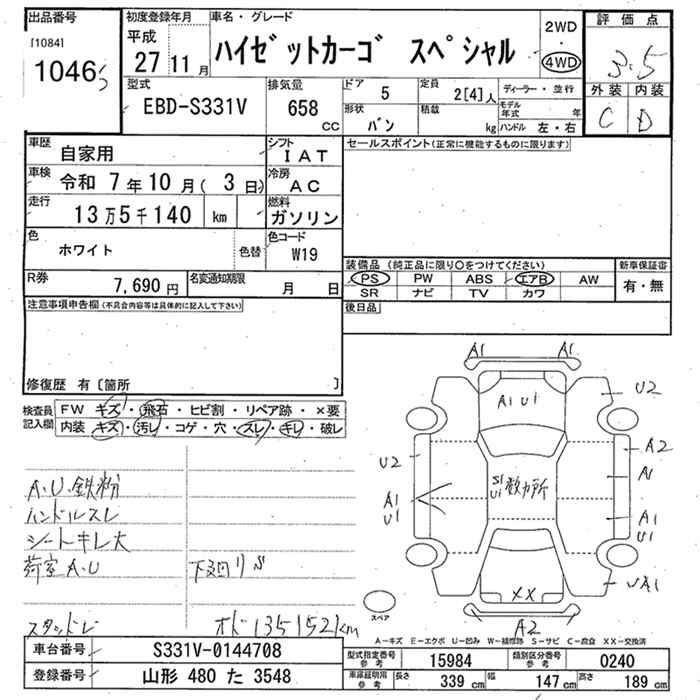 出品番号 初度登録年月 車名・グレード 2WD ・ 4WD 評価点
[1084] 平成 ハイゼットカーゴ スペシャル 3.5
1046 27 11月
型式 排気量 ドア 定員 ディーラー・並行 外装 内装
EBD-S331V 658 CC 5 2[4]人 モデル年式 年 C D
形状 積載
バン kg ハンドル 左・右
車歴 自家用 シフト IAT セールスポイント(正常に機能するものに限ります)
車検 令和 7年 10月( 3日) 冷房 AC
走行 13万5千140 km 燃料 ガソリン
色 ホワイト 色替 色コード W19
装備品 (純正品に限り○をつけてください) 新車保証書
R券 7,690円 名変通知期限 月 日 PS PW ABS エアB AW 有・無
SR ナビ TV カワ
注意事項申告欄(不具合内容等は具体的に記入して下さい) 後日品
修復歴 有〔箇所 〕
検査員記入欄 FW キズ・飛石・ヒビ割・リペア跡・×要
内装 キズ・汚レ・コゲ・穴・スレ・キレ・破レ
A1 A1
A1 U1
U2
U2 A2
S1 U1 数カ所 A1
A1 U1 A1 U1
A.U.鉄粉
ハンドルスレ
シートキレ大
荷室A.U 下廻りS
XX UA1
スペア
A2
スタッドレ オド135152km
A-キズ E-エクボ U-凹み W-補修跡 S-サビ C-腐食 XX-交換済
車台番号 S331V-0144708 型式指定番号 参考 15984 類別区分番号 参考 0240
登録番号 山形 480 た 3548 車庫証明用 参考 長さ 339 cm 幅 147 cm 高さ 189 cm